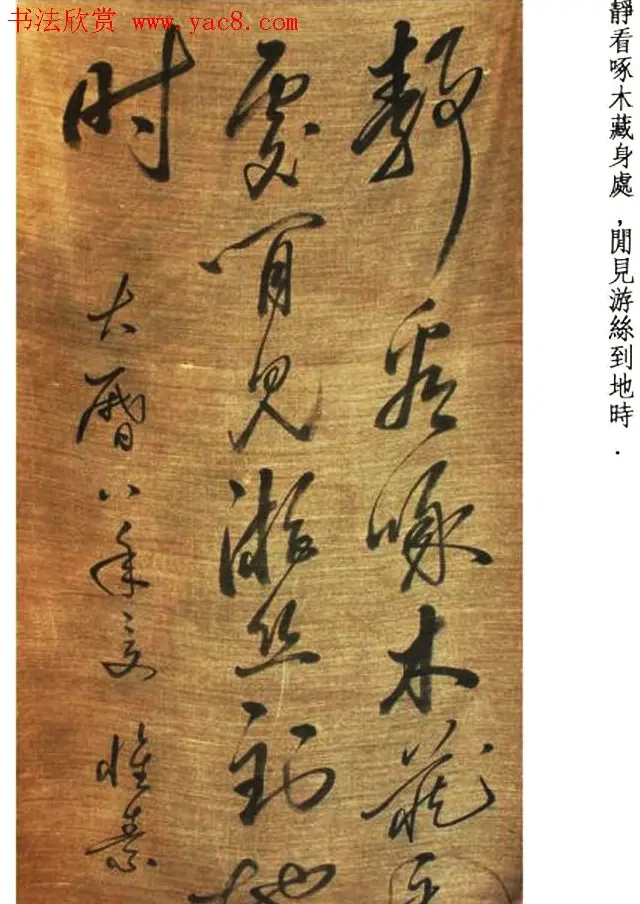 书法欣赏 www.yac8.com
靜看啄木藏身處，閒見游絲到地時．
靜看啄木藏身
處閒見游丝到地
时
大曆八年夏 懷素